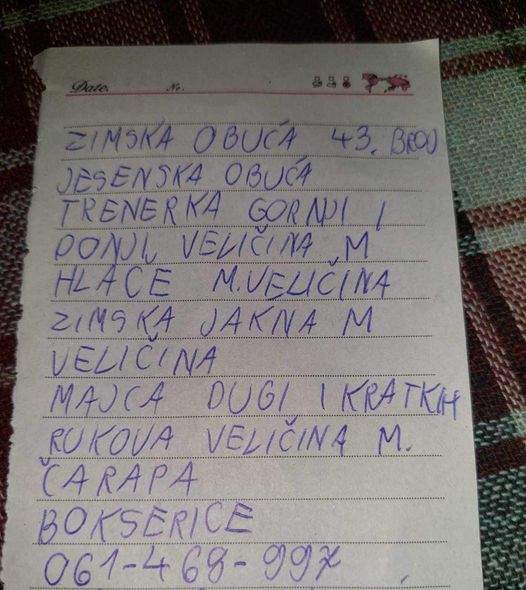 Date. No.
ZIMSKA OBUĆA 43. BROJ
JESENSKA OBUĆA
TRENERKA GORNJI I
DONJI, VELIČINA M
HLAČE M.VELIČINA
ZIMSKA JAKNA M
VELIČINA
MAJCA DUGI I KRATKIH
RUKOVA VELIČINA M.
ČARAPA
BOKSERICE
061-468-997